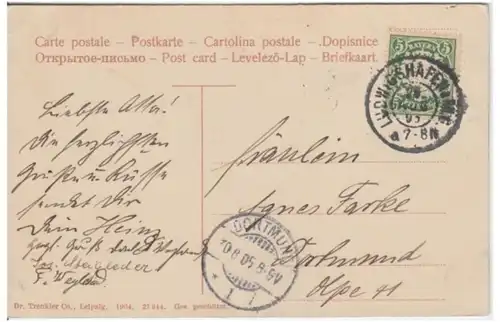 Carte postale – Postkarte – Cartolina postale – Dopisnice
Открытое-письмо – Post card – Levelező-Lap – Briefkaart.
5 BAYERN 5
LUDWIGSHAFEN
7-8N
Liebste
Die herzlichsten
Grüße u. Küsse
sendet Dir
Dein Heinz
Fräulein
Agnes Farke
Dortmund
Olpe 41
DORTMUND
10.8.05.8-9V
* 1 i
Dr. Trenkler Co., Leipzig. 1904. 27 Ges. geschützt.